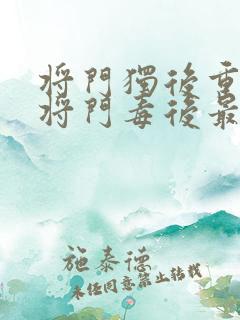 将門獨後重
将門毒後最
施泰德
未任同意禁止转载